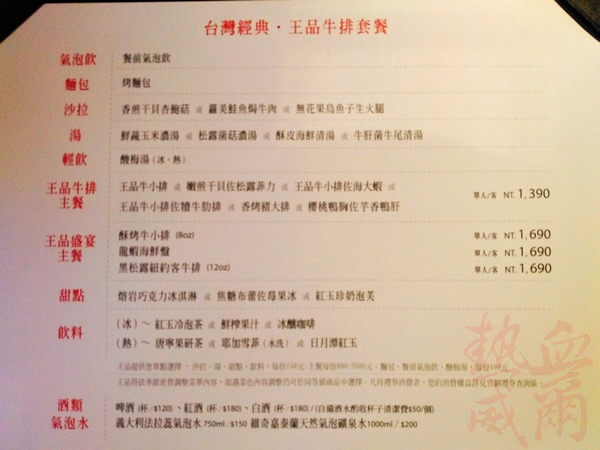 台灣經典・王品牛排套餐
氣泡飲 餐前氣泡飲
麵包 烤麵包
沙拉 香煎干貝杏鮑菇 或 蘿美鮭魚焗牛肉 或 無花果烏魚子生火腿
湯 鮮蔬玉米濃湯 或 松露菌菇濃湯 或 酥皮海鮮清湯 或 牛肝菌牛尾清湯
輕飲 酸梅湯 (冰、熱)
王品牛排 主餐 王品牛小排 或 嫩煎干貝佐松露菲力 或 王品牛小排佐海大蝦 或
王品牛小排佐犢牛肋排 或 香烤豬大排 或 櫻桃鴨胸佐芋香鴨肝 單人/客 NT. 1,390
王品盛宴 主餐 酥烤牛小排 (8oz) 單人/客 NT. 1,690
龍蝦海鮮盤 單人/客 NT. 1,690
黑松露紐約客牛排 (12oz) 單人/客 NT. 1,690
甜點 熔岩巧克力冰淇淋 或 焦糖布蕾佐莓果冰 或 紅玉珍奶泡芙
飲料 (冰) ～ 紅玉冷泡茶 或 鮮榨果汁 或 冰釀咖啡
(熱) ～ 唐寧果研茶 或 耶加雪菲 (水洗) 或 日月潭紅玉
酒類 啤酒 (杯/$120)、紅酒 (杯/$180)、白酒 (杯/$180) / (自備酒水酌收杯子清潔費$50/個)
氣泡水 義大利法拉蕊氣泡水 750ml / $150 維奇嘉泰蘭天然氣泡礦泉水1000ml / $200
熱血
威爾